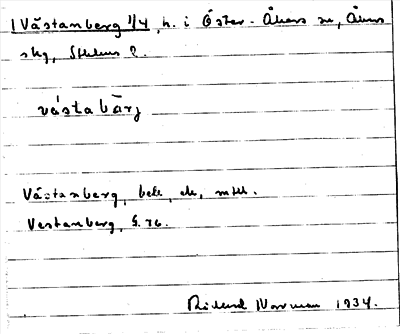 1 Västanberg 1/4, h. i Öster-Åkers sn, Åkers
skg, Sthlms l.
västabärj
Västanberg, bebe, ek, mtbl.
Vestanberg, G.76.
Rickard Norrman 1934.